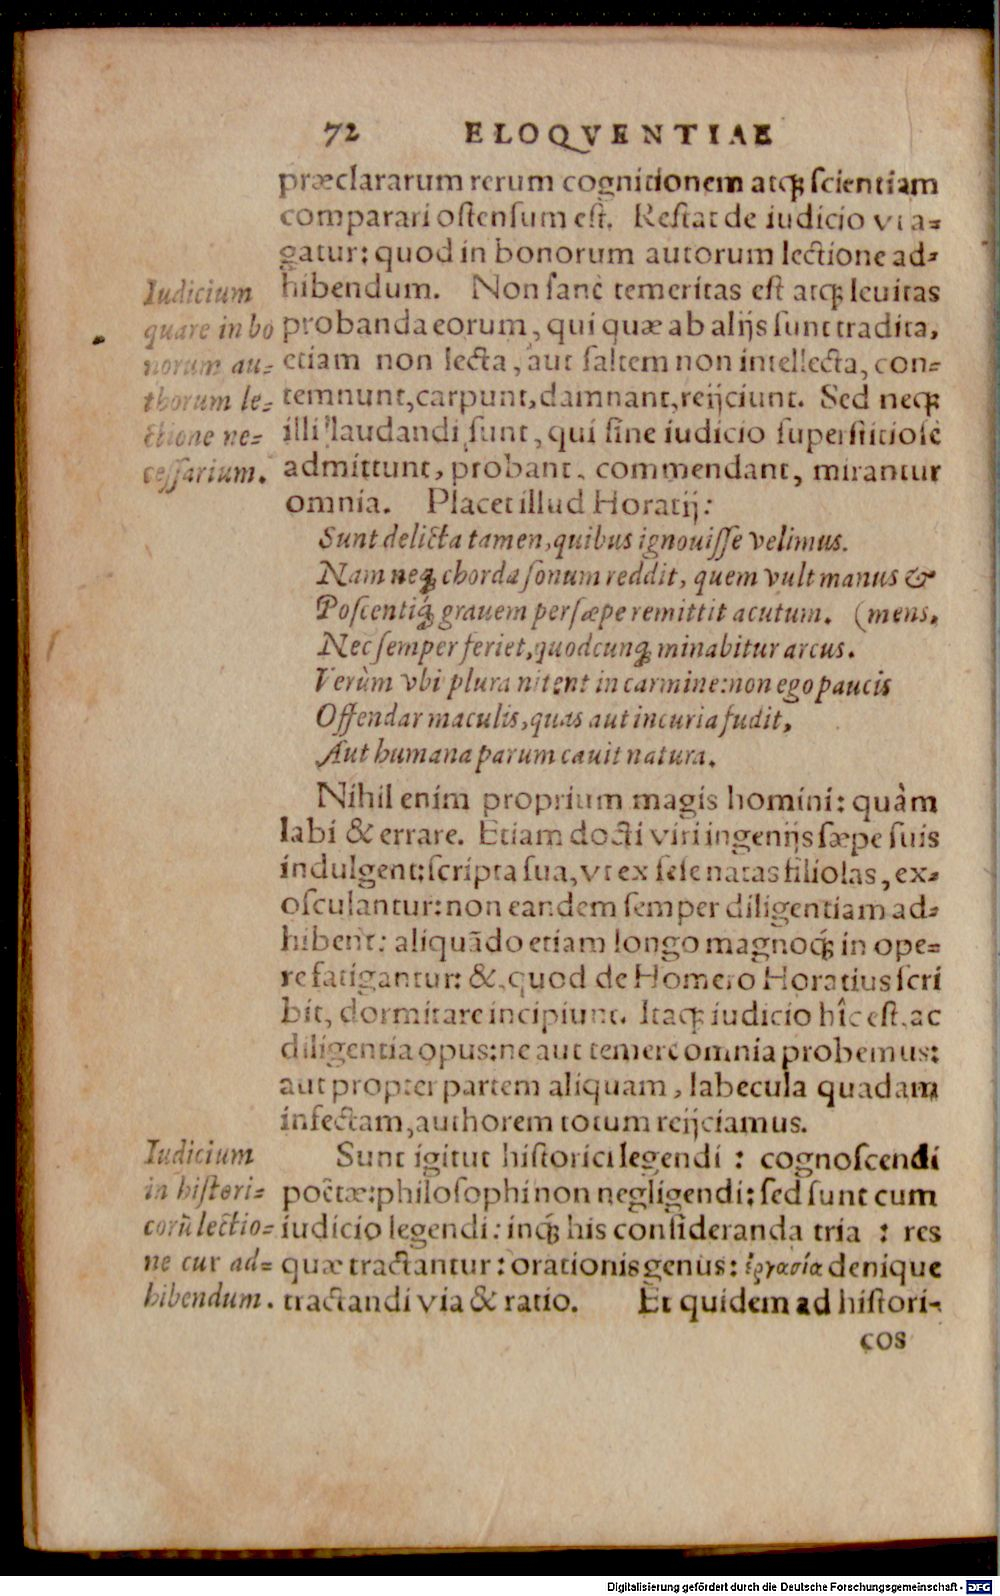 72 ELOQVENTIAE
præclararum rerum cognitionem atqꝫ ſcientiam
comparari oſtenſum eſt. Reſtat de iudicio vt a-
gatur: quod in bonorum autorum lectione ad-
hibendum. Non ſanè temeritas eſt atqꝫ leuitas
probanda eorum, qui quæ ab alijs ſunt tradita,
etiam non lecta, aut ſaltem non intellecta, con-
temnunt, carpunt, damnant, reijciunt. Sed neqꝫ
illi laudandi ſunt, qui ſine iudicio ſuperſtitioſè
admittunt, probant, commendant, mirantur
omnia. Placet illud Horatij:
Iudicium
quare in bo
norum au-
thorum le-
ctione ne-
ceſſarium.
Sunt delicta tamen, quibus ignouiſſe velimus.
Nam neqꝫ chorda ſonum reddit, quem vult manus &
Poſcentiqꝫ́ grauem perſæpe remittit acutum. (mens.
Nec ſemper feriet, quodcunqꝫ minabitur arcus.
Verùm vbi plura nitent in carmine: non ego paucis
Offendar maculis, quas aut incuria fudit,
Aut humana parum cauit natura.
Nihil enim proprium magis homini: quàm
labi & errare. Etiam docti viri ingenijs ſæpe ſuis
indulgent: ſcripta ſua, vt ex ſeſe natas filiolas, ex-
oſculantur: non eandem ſemper diligentiam ad-
hibent: aliquādo etiam longo magnoqꝫ́ in ope-
re fatigantur: &, quod de Homero Horatius ſcri
bit, dormitare incipiunt. Itaqꝫ iudicio hîc eſt, ac
diligentia opus: ne aut temere omnia probemus:
aut propter partem aliquam, labecula quadam
infectam, authorem totum reijciamus.
Sunt igitur hiſtorici legendi: cognoſcendi
poëtæ: philoſophi non negligendi: ſed ſunt cum
iudicio legendi: inqꝫ́ his conſideranda tria: res
quæ tractantur: orationis genus: ἐργασία denique
tractandi via & ratio. Et quidem ad hiſtori-
Iudicium
in hiſtori-
corũ lectio-
ne cur ad-
hibendum.
cos
Digitalisierung gefördert durch die Deutsche Forschungsgemeinschaft - DFG